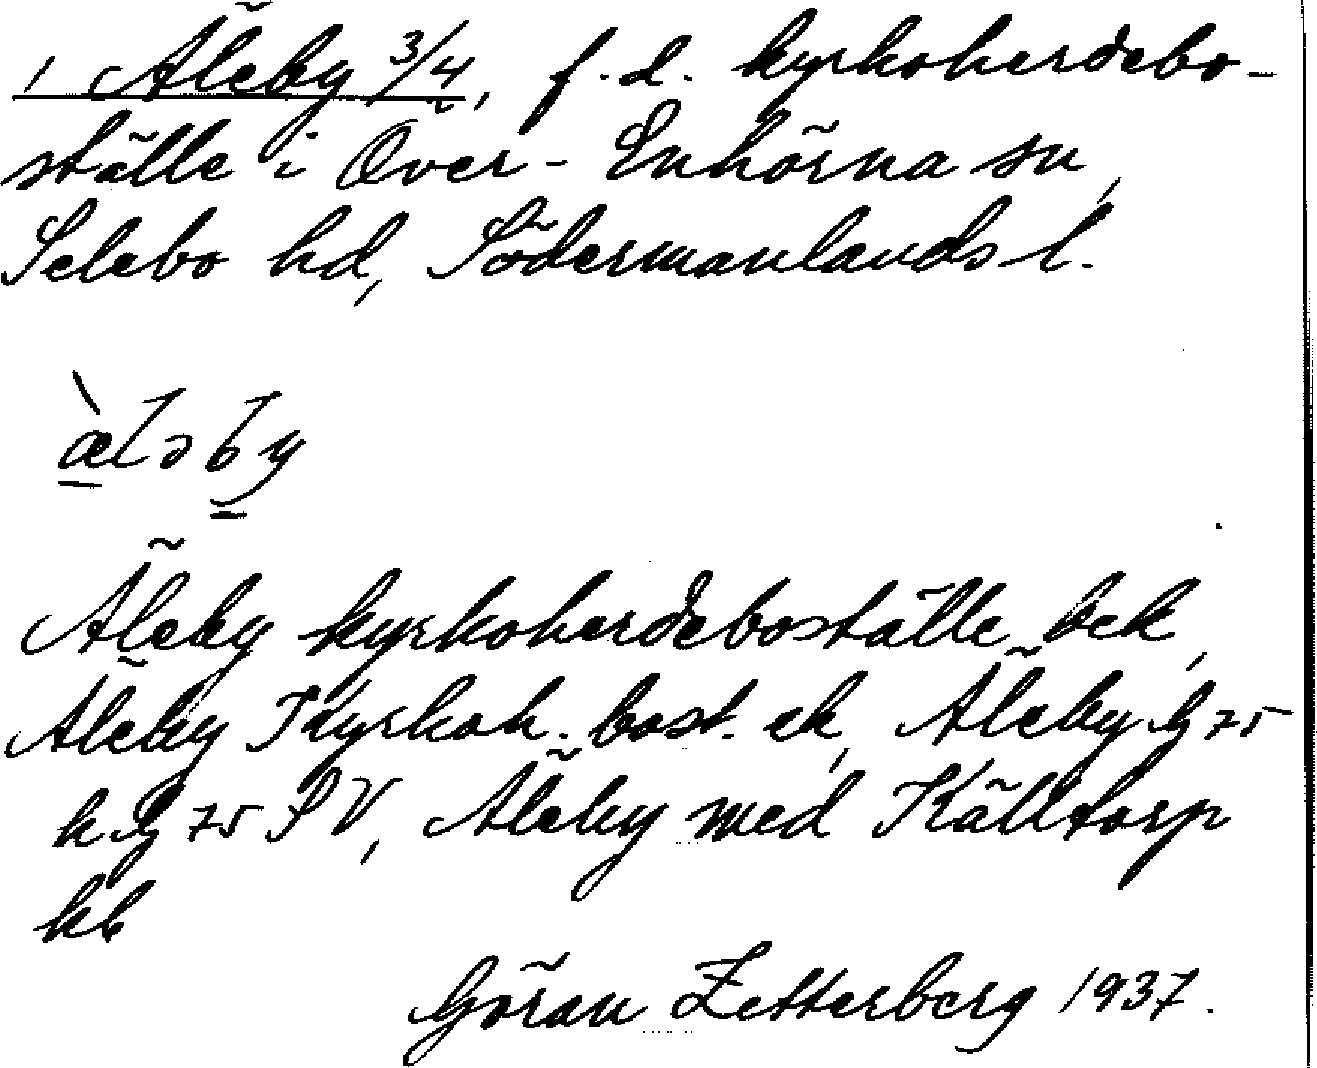 1 Äleby 3/4, f.d. kyrkoherdebo-
ställe i Över-Enhörna sn,
Selebo hd, Södermanlands l.
ä̀lǝby
Äleby kyrkoherdeboställe bek,
Äleby Kyrkoh. bost. ek, Äleby
75 SV, Äleby med Källtorp
kb
Göran Zetterberg 1937.